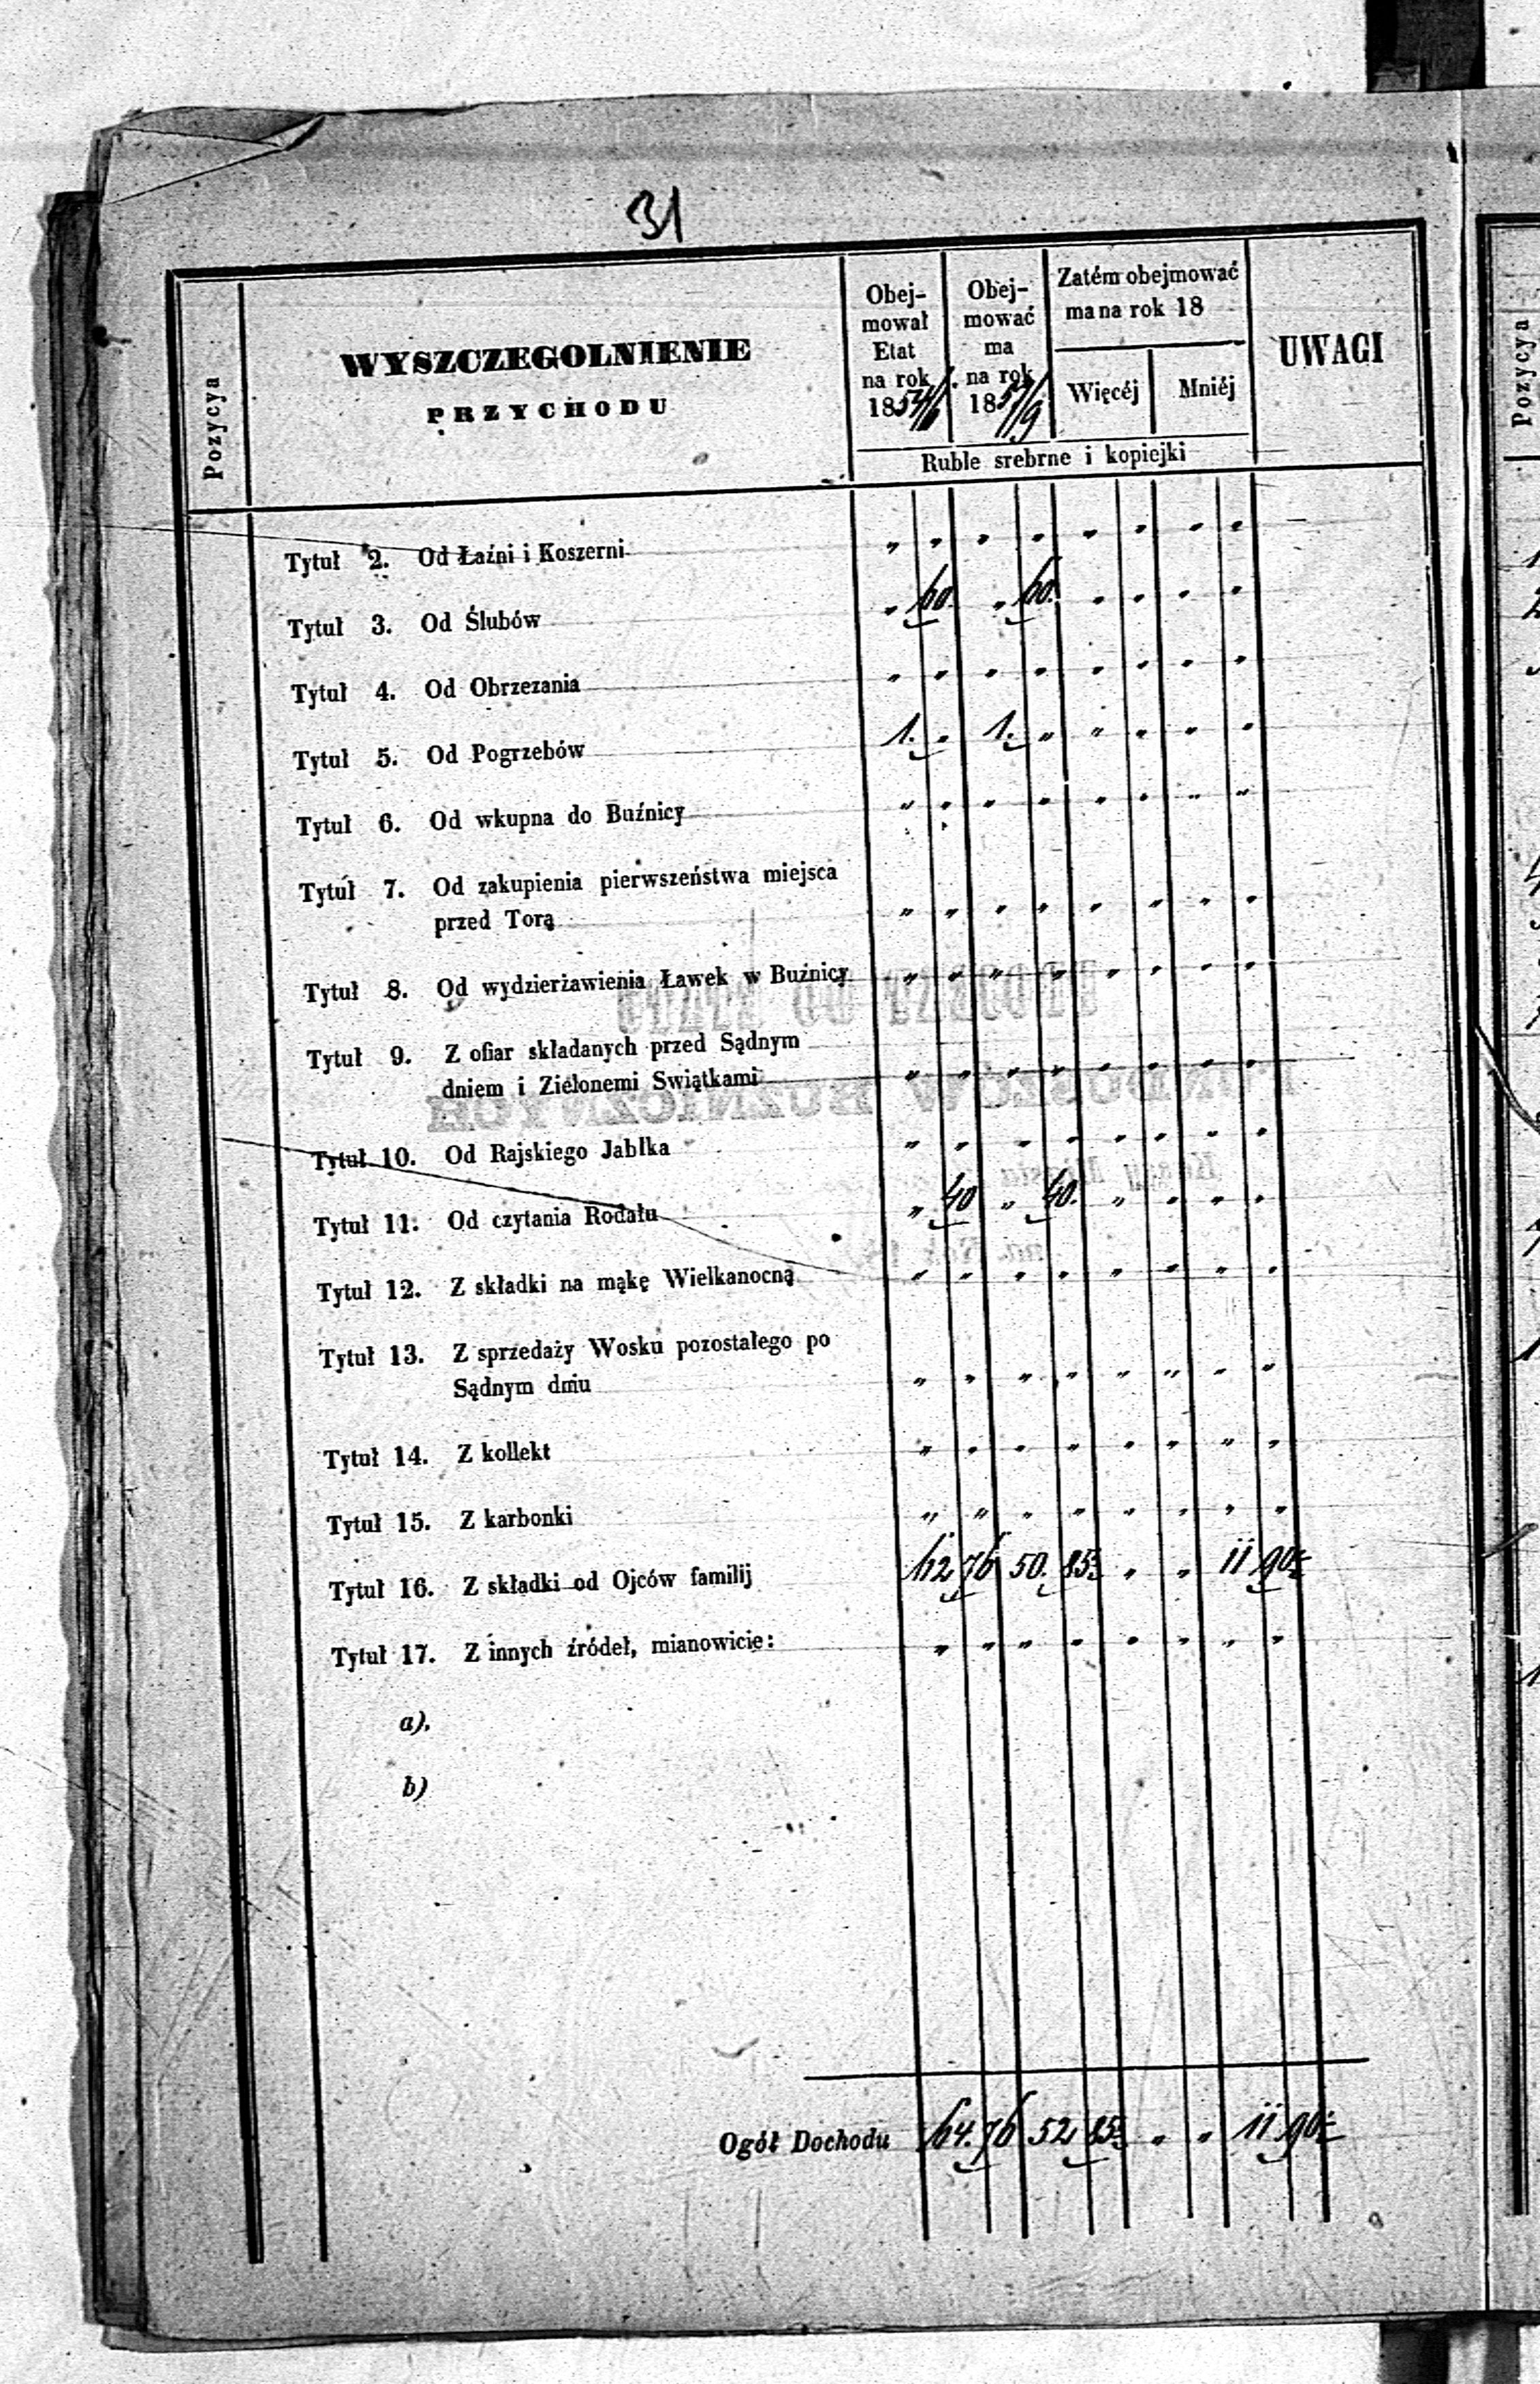 31
Pozycya
WYSZCZEGOLNIENIE
PRZYCHODU
Obej-
mował
Etat
na rok
185
Obej-
mować
ma
na rok
185
Zatém obejmować
ma na rok 18
Więcéj
Mniéj
Ruble srebrne i kopiejki
UWAGI
Tytuł 2. Od Łaźni i Koszerni " " " " " " " "
Tytuł 3. Od Ślubów " 60. " 60. " " " "
Tytuł 4. Od Obrzezania " " " " " " " "
Tytuł 5. Od Pogrzebów 1. " 1. " " " " "
Tytuł 6. Od wkupna do Buźnicy " " " " " " " "
Tytuł 7. Od zakupienia pierwszeństwa miejsca
przed Torą " " " " " " " "
Tytuł 8. Od wydzierżawienia Ławek w Buźnicy " " " " " " " "
Tytuł 9. Z ofiar składanych przed Sądnym
dniem i Zielonemi Swiątkami " " " " " " " "
Tytuł 10. Od Rajskiego Jabłka " " " " " " " "
Tytuł 11. Od czytania Rodału " 40 " 40. " " " "
Tytuł 12. Z składki na mąkę Wielkanocną " " " " " " " "
Tytuł 13. Z sprzedaży Wosku pozostałego po
Sądnym dniu " " " " " " " "
Tytuł 14. Z kollekt " " " " " " " "
Tytuł 15. Z karbonki " " " " " " " "
Tytuł 16. Z składki od Ojców familij 62 76 50. 85 " " 11 90
Tytuł 17. Z innych źródeł, mianowicie: " " " " " " " "
a).
b)
Ogół Dochodu 64. 76 52 85 " " 11 90
Pozycya